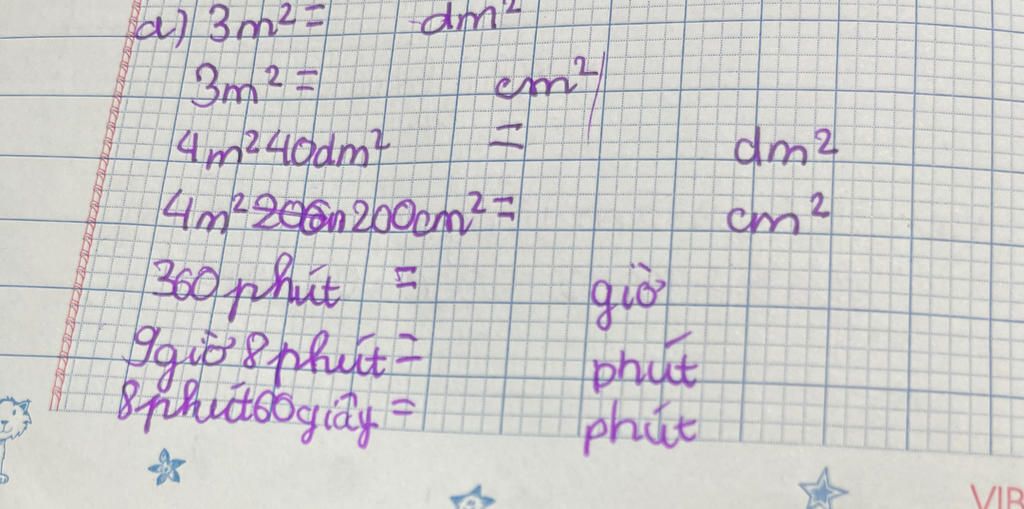 a) 3m² = dm²
3m² = cm²
4m² 40dm² = dm²
4m² 200cm² = cm²
360 phút = giờ
9 giờ 8 phút = phút
8 phút 60 giây = phút
VIB